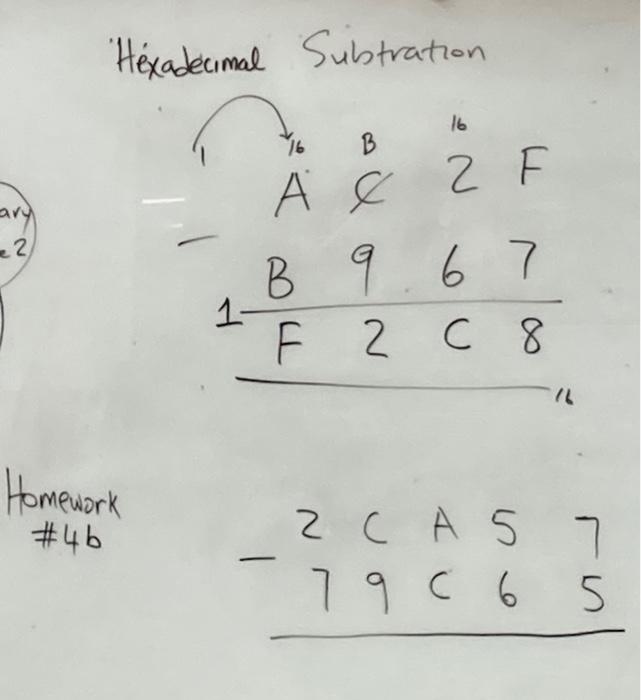 Hexadecimal Subtration
1 16 B 16
A C 2 F
ary
- B 9 6 7
1
F 2 C 8
16
Homework
#4b
2 C A 5 7
- 7 9 C 6 5